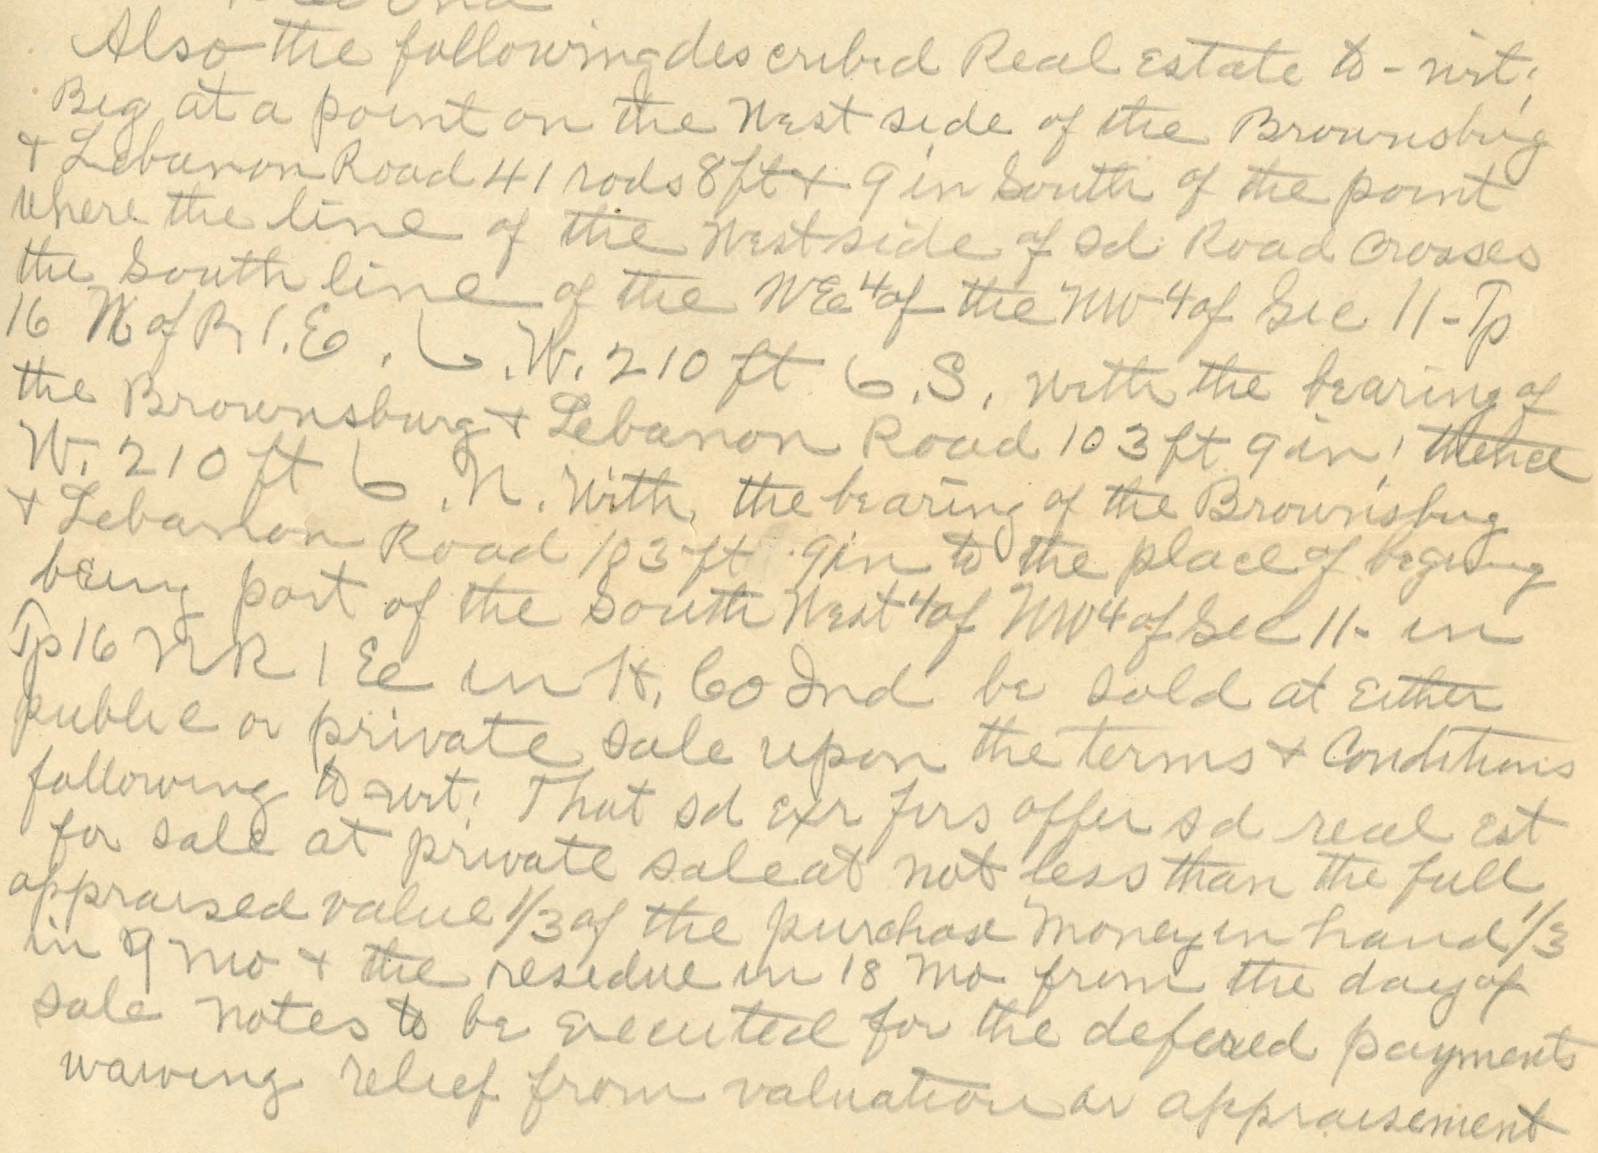 Also the following described Real Estate to-wit;
Beg at a point on the West side of the Brownsburg
& Lebanon Road 41 rods 8 ft & 9 in South of the point
where the line of the West side of sd Road Crosses
the South line of the W Ec 4 of the NW 4 of Sec 11 - Tp
16 N of R 1. E. . W. 210 ft .S. with the bearing of
the Brownsburg & Lebanon Road 103 ft 9 in; thence
W. 210 ft . N. With, the bearing of the Brownsbug
& Lebanon Road 103 ft 9 in to the place of beging
being part of the South West 4 of NW 4 of Sec 11 - in
Tp 16 N R 1 Ee in H. Co Ind be sold at Either
public or private sale upon the terms & Conditions
following to-wit; That sd Exr firs offer sd real Est
for sale at private sale at not less than the full
appraised value 1/3 of the purchase money in hand 1/3
in 9 mo & the residue in 18 mo from the day of
sale notes to be executed for the defered payments
waiving relief from valuation or appraisement